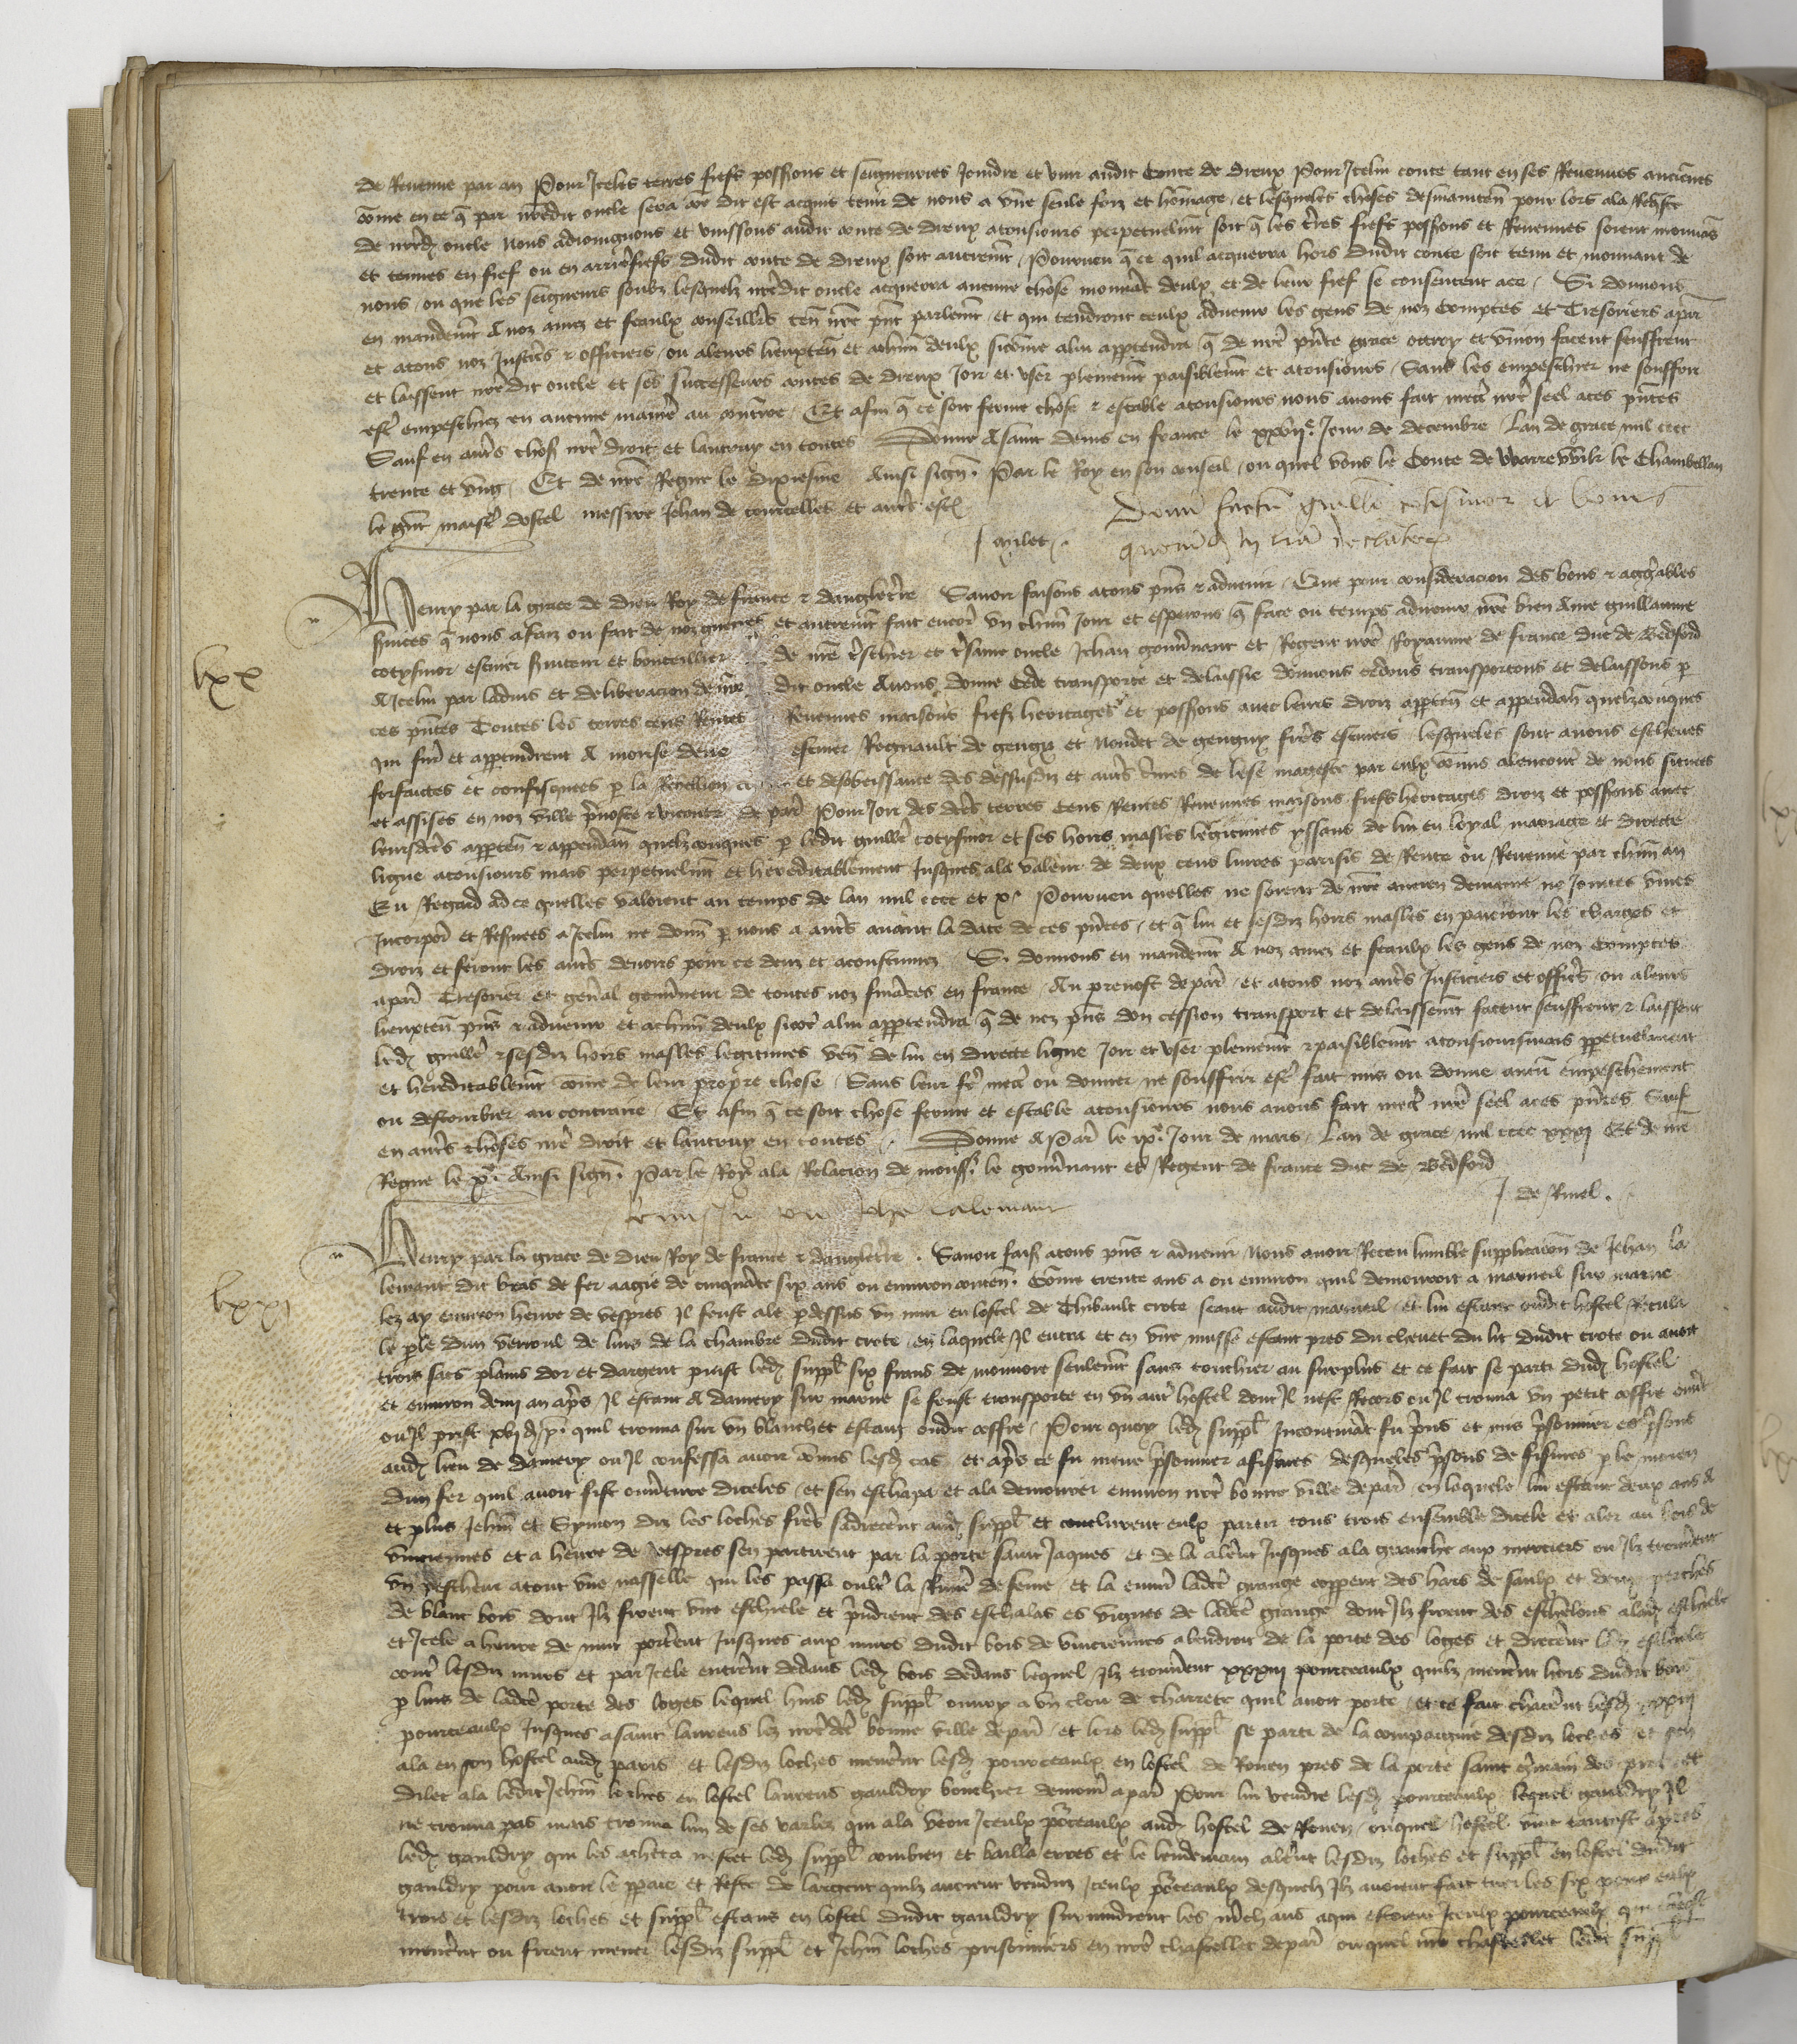 de Revenue par an Pour Iceles terres fiefs possessions et seigneuries Joindre et unir audit Conte de dreux Pour Icelui conte tant en ses Revenues anciennes
come en ce q par nredit oncle sera come dit est acquis tenir de nous a une seule foiz et homage et lesqueles choses desmaintenant pour lors ala Reqste
de nredit oncle Nous adioingnons et unissons audit conte de dreux atousiours perpetuelmt soit q les terres fiefs possessions et Revenues soient mouvans
et tenues en fief ou en arrierefiefs dudit conte de dreux soit autremt Pourveu q ce quil acquerra hors dudit conte soit tenu et mouvant de
nous ou que les seigneurs soubz lesquelz nredit oncle acquerra aucune chose mouvant deulx et de leur fief se consentent ace Si donnons
en mandemt A noz amez et feaulx conseillers ten nre pnt parlemt et qui tendront ceulx advenir les gens de noz Comptes et Tresoriers apar
et atous noz Justiciers & officiers ou aleurs lieuxten et achun deulx sicome alui appartendra q de nre pnte grace octroy et union facent seuffrent
et laissent nredit oncle et ses successeurs contes de dreux Joir et user plemmt paisiblemt et atousiours Sans les empeschier ne souffrir
estre empeschiez en aucune maniere au contraire Et afin q ce soit ferme chose & estable atousiours nous avons fait mectre nre seel aces pntes
Sauf en autres choses nre droit et lautruy en toutes Donne A saint denis en france le xxviie Jour de decembre Lan de grace mil cccc
trente et ung Et de nre Regne le dixiesme Ainsi signe Par le Roy en son conseil ou quel vous le Conte de Warrewik le Chambellan
le grant maistre dostel messire Jehan de courcelles et autres estiez
J milet
Donum factum guillelmo cotismor de bonis
Henry par la grace de dieu Roy de france & dangleterre Savoir faisons atous pns & advenir Que pour consideracion des bons & aggreables
services q nous a faiz ou fait de noz guerres et autremt fait encor un chun Jour et esperons q face ou temps advenir nre bien Ame guillaume
cotysmor escuier serviteur et bouteillier de nre treschier et tresame oncle Jehan gouvernant et Regent nre Royaume de france duc de Bedford
A Icelui par ladvis et deliberacion de nre dit oncle Avons donne Cede transporte et delaissie donnons cedons transportons et delaissons p
ces pntes Toutes les terres cens Rentes Revenues maisons fiefs heritages et possessions avec leurs droiz apparten et appendan quelzconques
qui furent et appartindrent A escuier Regnault de gengy et de gengny freres escuiers lesqueles sont a nous escheues
forfaictes et confisquees p la Rebellion et desobeissance des dessusd et autres crimes de lese mageste par eulx comis alencontre de nous situees
et assises en noz ville prevoste & viconte de par Pour Joir des dites terres Cens Rentes Revenues maisons fiefs heritages droiz et possessions avec
leursdites apparten & appendan quelzconques p ledit guille cotysmor et ses hoirs masles legitimes yssans de lui en loyal mariage et directe
ligne atousiours mais perpetuelmt et hereditablement Jusques ala valeur de deux cens livres parisis de Rente ou Revenue par chun an
Eu Regard ad ce quelles valoient au temps de lan mil cccc et x Pourveu quelles ne soient de nre ancien demaine ne Jointes unies
Incorpore et Reservees a Icelui ne donn p nous a autres avant la date de ces pntes et q lui et sesdiz hoirs masles en paieront les charges et
droiz et feront les autres devoirs pour ce deuz et acoustumez Si donnons en mandemt A noz amez et feaulx les gens de noz Comptes
apar Tresorier et general gouverneur de toutes noz finances en france Au prevost de par et atous noz autres Justiciers et officiers ou aleurs
lieuxten pns & advenir et achun deulx sicome alui appartendra q de noz pns don cession transport et delaissemt facent seuffrent & laissent
ledit guille & sesdiz hoirs masles legitimes ven de lui en directe ligne Joir et user plemmt & paisiblemt atousioursmais ppetuelment
et hereditablemt come de leur propre chose Sans leur fere mectre ou donner ne souffrir estre fait mis ou donne aucun empeschement
ou destourbier au contraire Et afin q ce soit chose ferme et estable atousiours nous avons fait mectre nre seel aces pntes Sauf
en autres choses nre droit et lautruy en toutes Donne A Par le ixe Jour de mars Lan de grace mil cccc xxxi Et de nre
Regne le xe Ainsi signe Par le Roy ala Relacion de monsr le gouvernant et Regent de france duc de Bedford
J de Rinel
lxx
Henry par la grace de dieu Roy de france & dangleterre Savoir fais atous pns & advenir Nous avoir Receu humble supplicacion de Jehan la
lemant dit bras de fer aagie de cinquante six ans ou environ conten Come trente ans a ou environ quil demouroit a mareuil sur marne
lez ay environ heure de vespres Il feust ale p dessus un mur en lostel de Thibault crote seant audit mareuil et lui estant oudit hostel Recula
le ple dun verroul de luis de la chambre dudit crote en laquele Il entra et en une musse estant pres du chevet du lit dudit crote ou avoit
trois sacs plains dor et dargent prist led suppl six frans de monnoie seulemt sans touchier au surplus et ce fait se parti dud hostel
et environ demj an apres Il estant A damery sur marne se feust transporte en un autre hostel dont Il nest Recors ou Il trouva un petit coffre ouvert
ou Il prist xvj d p quil trouva sur un blanchet estant oudit coffre Pour quoy led suppl Incontinant fu prins et mis prisonnier es prisons
aud lieu de Damery ou Il confessa avoir comis lesd cas et apres ce fu mene prisonnier afismes desqueles prisons de fismes p le moien
dun fer quil avoit fist ouverture diceles et sen eschapa et ala demourer environ nre bonne ville de par en laquele lui estant deux ans a
et plus Jehan et Symon diz les loches freres sadrecerent aud suppl et conclurent eulx partir tous trois ensemble dicele et aler au bois de
vinciennes et a heure de vespres sen partirent par la porte saint Jaques et de la alerent Jusques ala granche aux merciers ou Ilz trouverent
un pescheur atout une nasselle qui les passa oultre la Riviere de seine et la environ ladite grange copperent des hars de saulx et deux perches
de blanc bois dont Ilz firent une eschiele et prindrent des eschalas es vignes de ladite grange dont Ilz firent des eschelons alad eschiele
et Icele a heure de nuit porterent Jusques aux murs dudit bois de vinciennes alendroit de la porte des loges et drecerent lad eschiele
contre lesdiz murs et par Icele entrerent dedans led bois dedans lequel Ilz trouverent xxxiij pourceaulx quilz menerent hors dudit bois
p luis de ladite porte des loges lequel huis led suppl ouvry a un clou de charrete quil avoit porte et ce fait chacerent lesd xxxiij
pourceaulx Jusques asaint laurens lez nredite bonne ville de par et lors led suppl se parti de la compaignie desdiz loches et sen
ala en son hostel aud paris et lesdiz loches menerent lesd pourceaulx en lostel de Rouen pres de la porte saint germain des prez et
dilec ala ledit Jehan loches en lostel laurens gauldry bouchier demourant apar Pour lui vendre lesd pourceaulx lequel gauldry Il
ne trouva pas mais trouva lun de ses varlez qui ala veoir Iceulx pourceaulx aud hostel de Rouen ouquel hostel vint tantost apres
led gauldry qui les acheta ne scet led suppl combien et bailla erres et le lendemain alerent lesdiz loches et suppl en lostel dudit
gauldry pour avoir le paie et Reste de largent quilz avoient venduz Iceulx pourceaulx desquelz Ilz avoient fait tuer les six pour eulx
trois et lesdiz loches et suppl estans en lostel dudit gauldry survindrent les mchans aqui estoient Iceulx pourceaulx qui
menerent ou firent mener lesdiz suppl et Jehan loches prisonniers en nre chastellet de par ouquel nre chastellet ledit suppl
lxxj